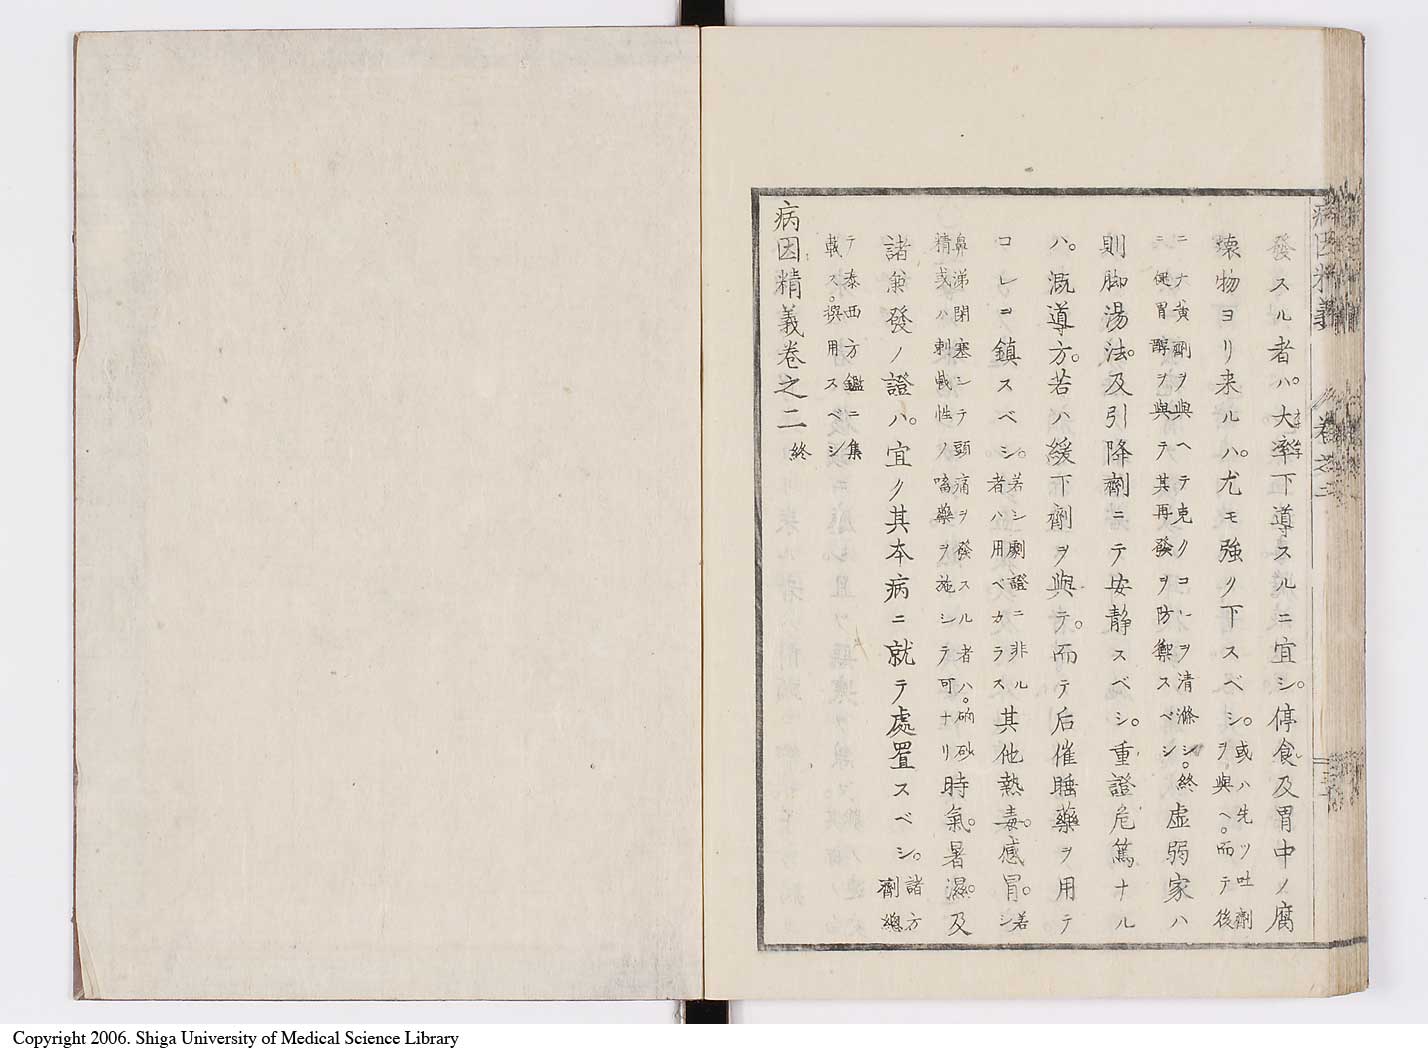 病因精義 卷之二 三十
發スル者ハ。大率下導スルニ宜シ。停食及胃中ノ腐
壊物ヨリ来ルハ。尤モ強ク下スベシ。或ハ先ツ吐劑ヲ與ヘ。而テ後
ニナ黄劑ヲ與ヘテ克クコレヲ清滌シ。終ニ健胃醇ヲ與テ其再發ヲ防禦スベシ虚弱家ハ
則脚湯法。及引降劑ニテ安静スベシ。重證危篤ナル
ハ。溉導方。若ハ緩下劑ヲ與テ。而テ后催睡藥ヲ用テ
コレヲ鎮スベシ。若シ劇證ニ非ル者ハ用ベカラス其他熱毒。感冒。若シ
鼻涕閉塞シテ頭痛ヲ發スル者ハ。硇砂精或ハ刺戟性ノ嚏藥ヲ施シテ可ナリ時氣。暑濕。及
諸兼發ノ證ハ。宜ク其本病ニ就テ處置スベシ。諸方劑總
テ泰西方鑑ニ集載ス。撰用スベシ
病因精義卷之二終
Copyright 2006. Shiga University of Medical Science Library